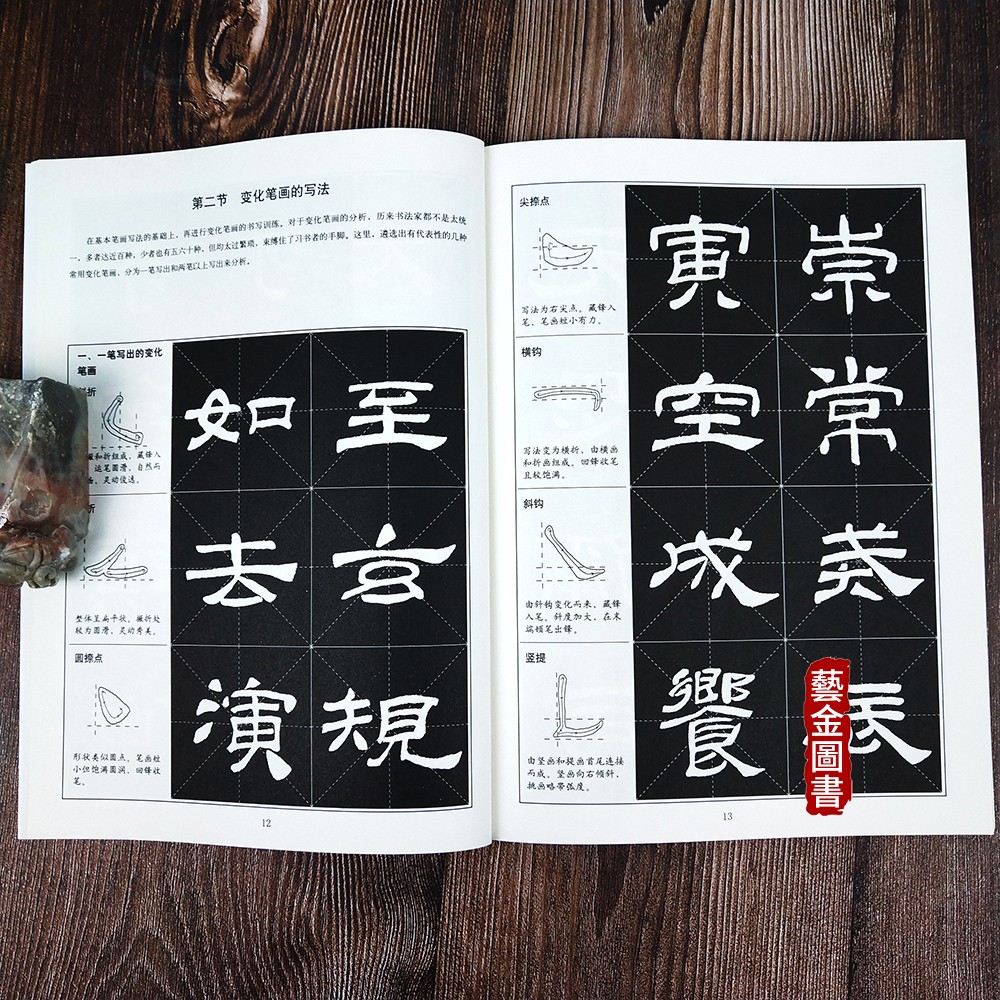 第二节 变化笔画的写法
在基本笔画写法的基础上，再进行变化笔画的书写训练。对于变化笔画的分析，历来书法家都不是太统
一，多者达近百种，少者也有五六十种，但均太过繁琐，束缚住了习书者的手脚。这里，遴选出有代表性的几种
常用变化笔画，分为一笔写出和两笔以上写出来分析。
一、一笔写出的变化
笔画
折
撇和折组成，藏锋入
运笔圆滑，自然而
灵动俊逸。
如 至
折
整体呈扁平状，撇折处
较为圆滑，灵动秀美。
去 玄
圆捺点
形状类似圆点，笔画短
小但饱满圆润，回锋收
笔。
演 規
12
尖捺点
写法为右尖点。藏锋入
笔，笔画短小有力。
寅 崇
横钩
写法变为横折，由横画
和折画组成。回锋收笔
且较饱满。
空 常
斜钩
由斜钩变化而来，藏锋
入笔。斜度加大，在末
端顿笔出锋。
成
竖提
由竖画和提画首尾连接
而成。竖画向右倾斜，
挑画略带弧度。
饗
13
藝金圖書